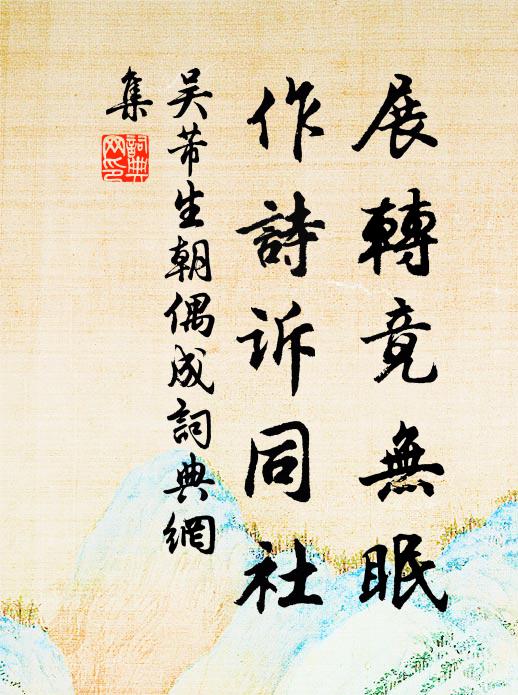 展轉竟無眠
作詩诉同社
吴芾生朝偶成詞典網
集
詞典網印